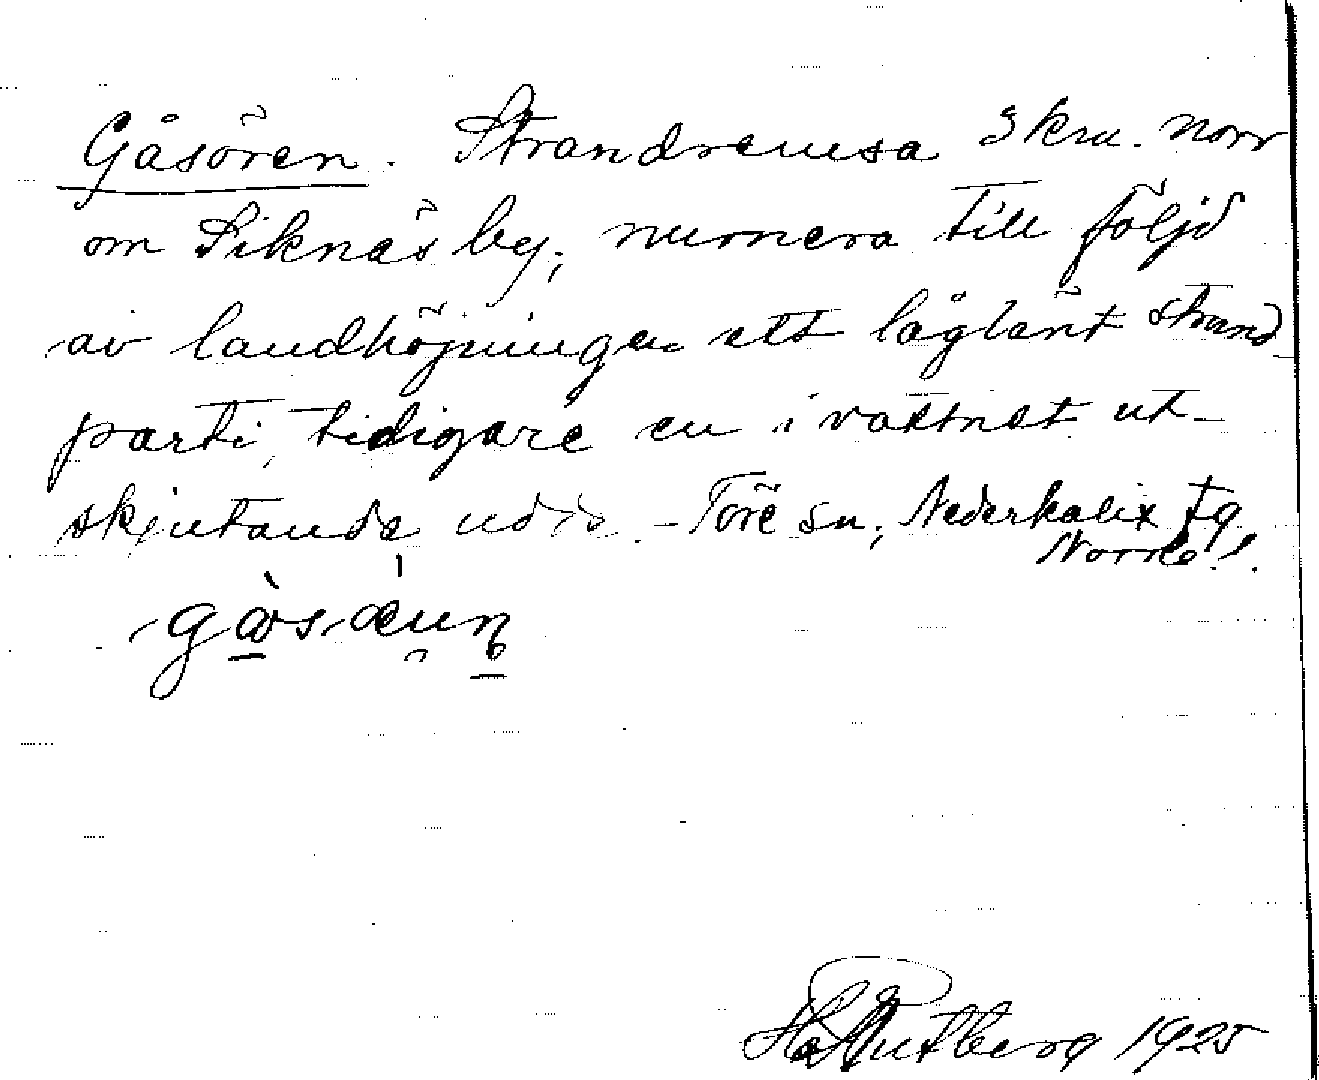 Gåsören. Strandremsa 3 km. norr
om Siknäs by, numera till följd
av landhöjningen ett låglänt strand
parti, tidigare en i vattnet ut-
skjutande udde. - Töre sn, Nederkalix tg
Norrb. l.
H. Hultberg 1925